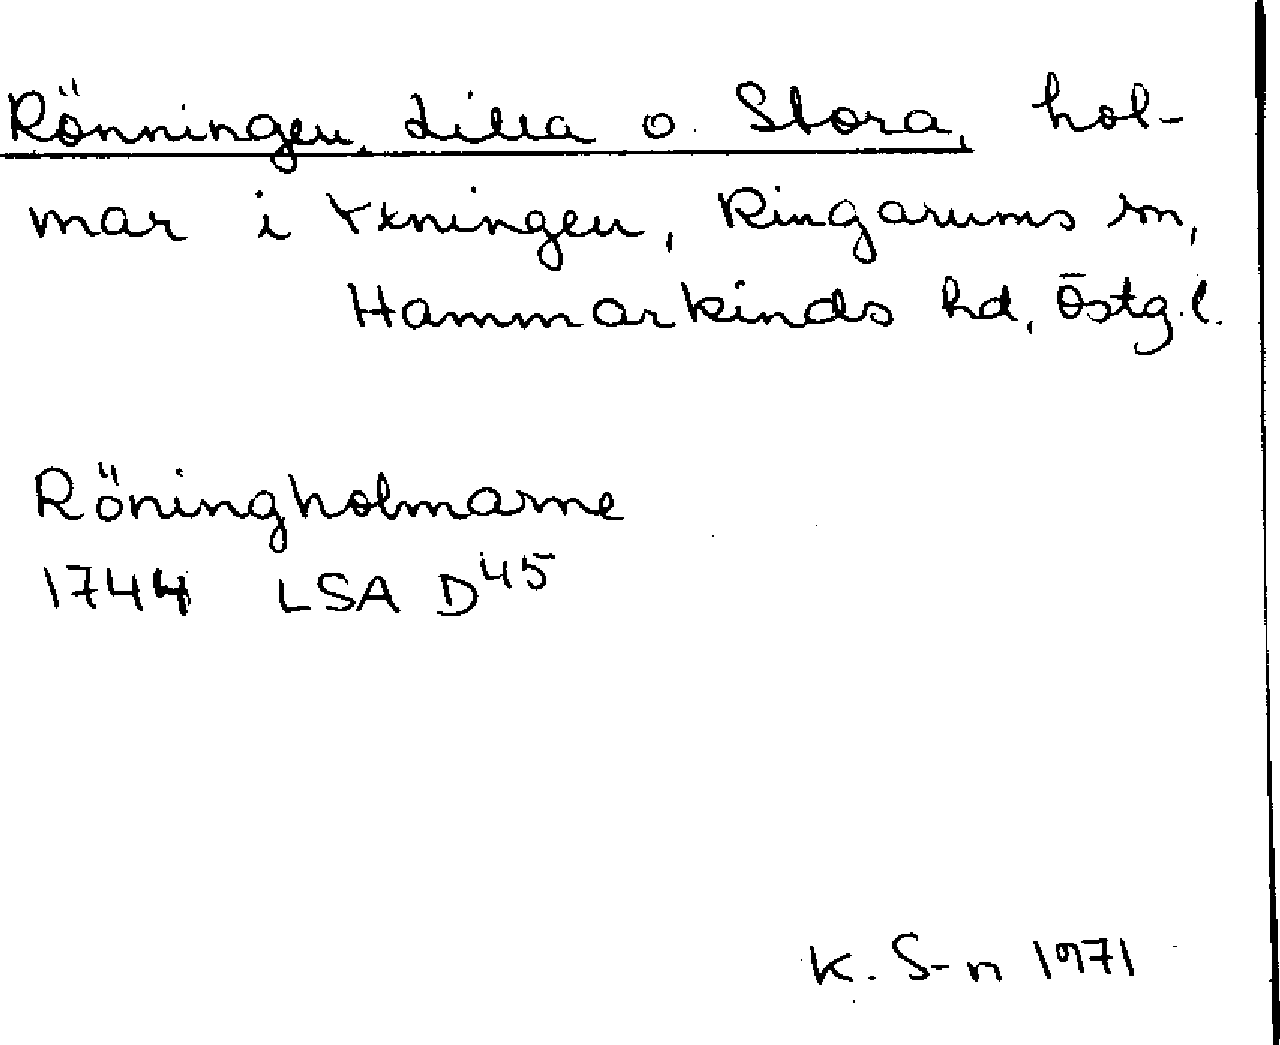 Rönningen, Lilla o. Stora, hol-
mar i Yxningen, Ringarums sn,
Hammarkinds hd, Östg.l.
Röningholmarne
1744 LSA D45
K. S-n 1971